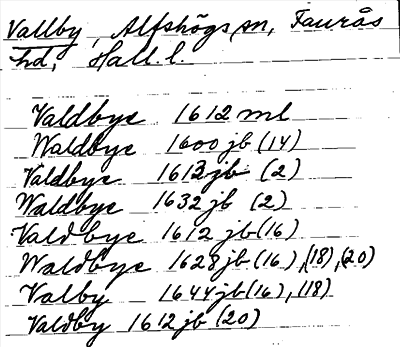 Vallby, Alfshögs sn, Faurås
hd, Hall. l.
Valdbye 1612 ml
Waldbye 1600 jb (14)
Valdbye 1613 jb (2)
Waldbye 1632 jb (2)
Valdbye 1612 jb (16)
Waldbye 1628 jb (16), (18), (20)
Valby 1644 jb (16), (18)
Valdby 1612 jb (20)